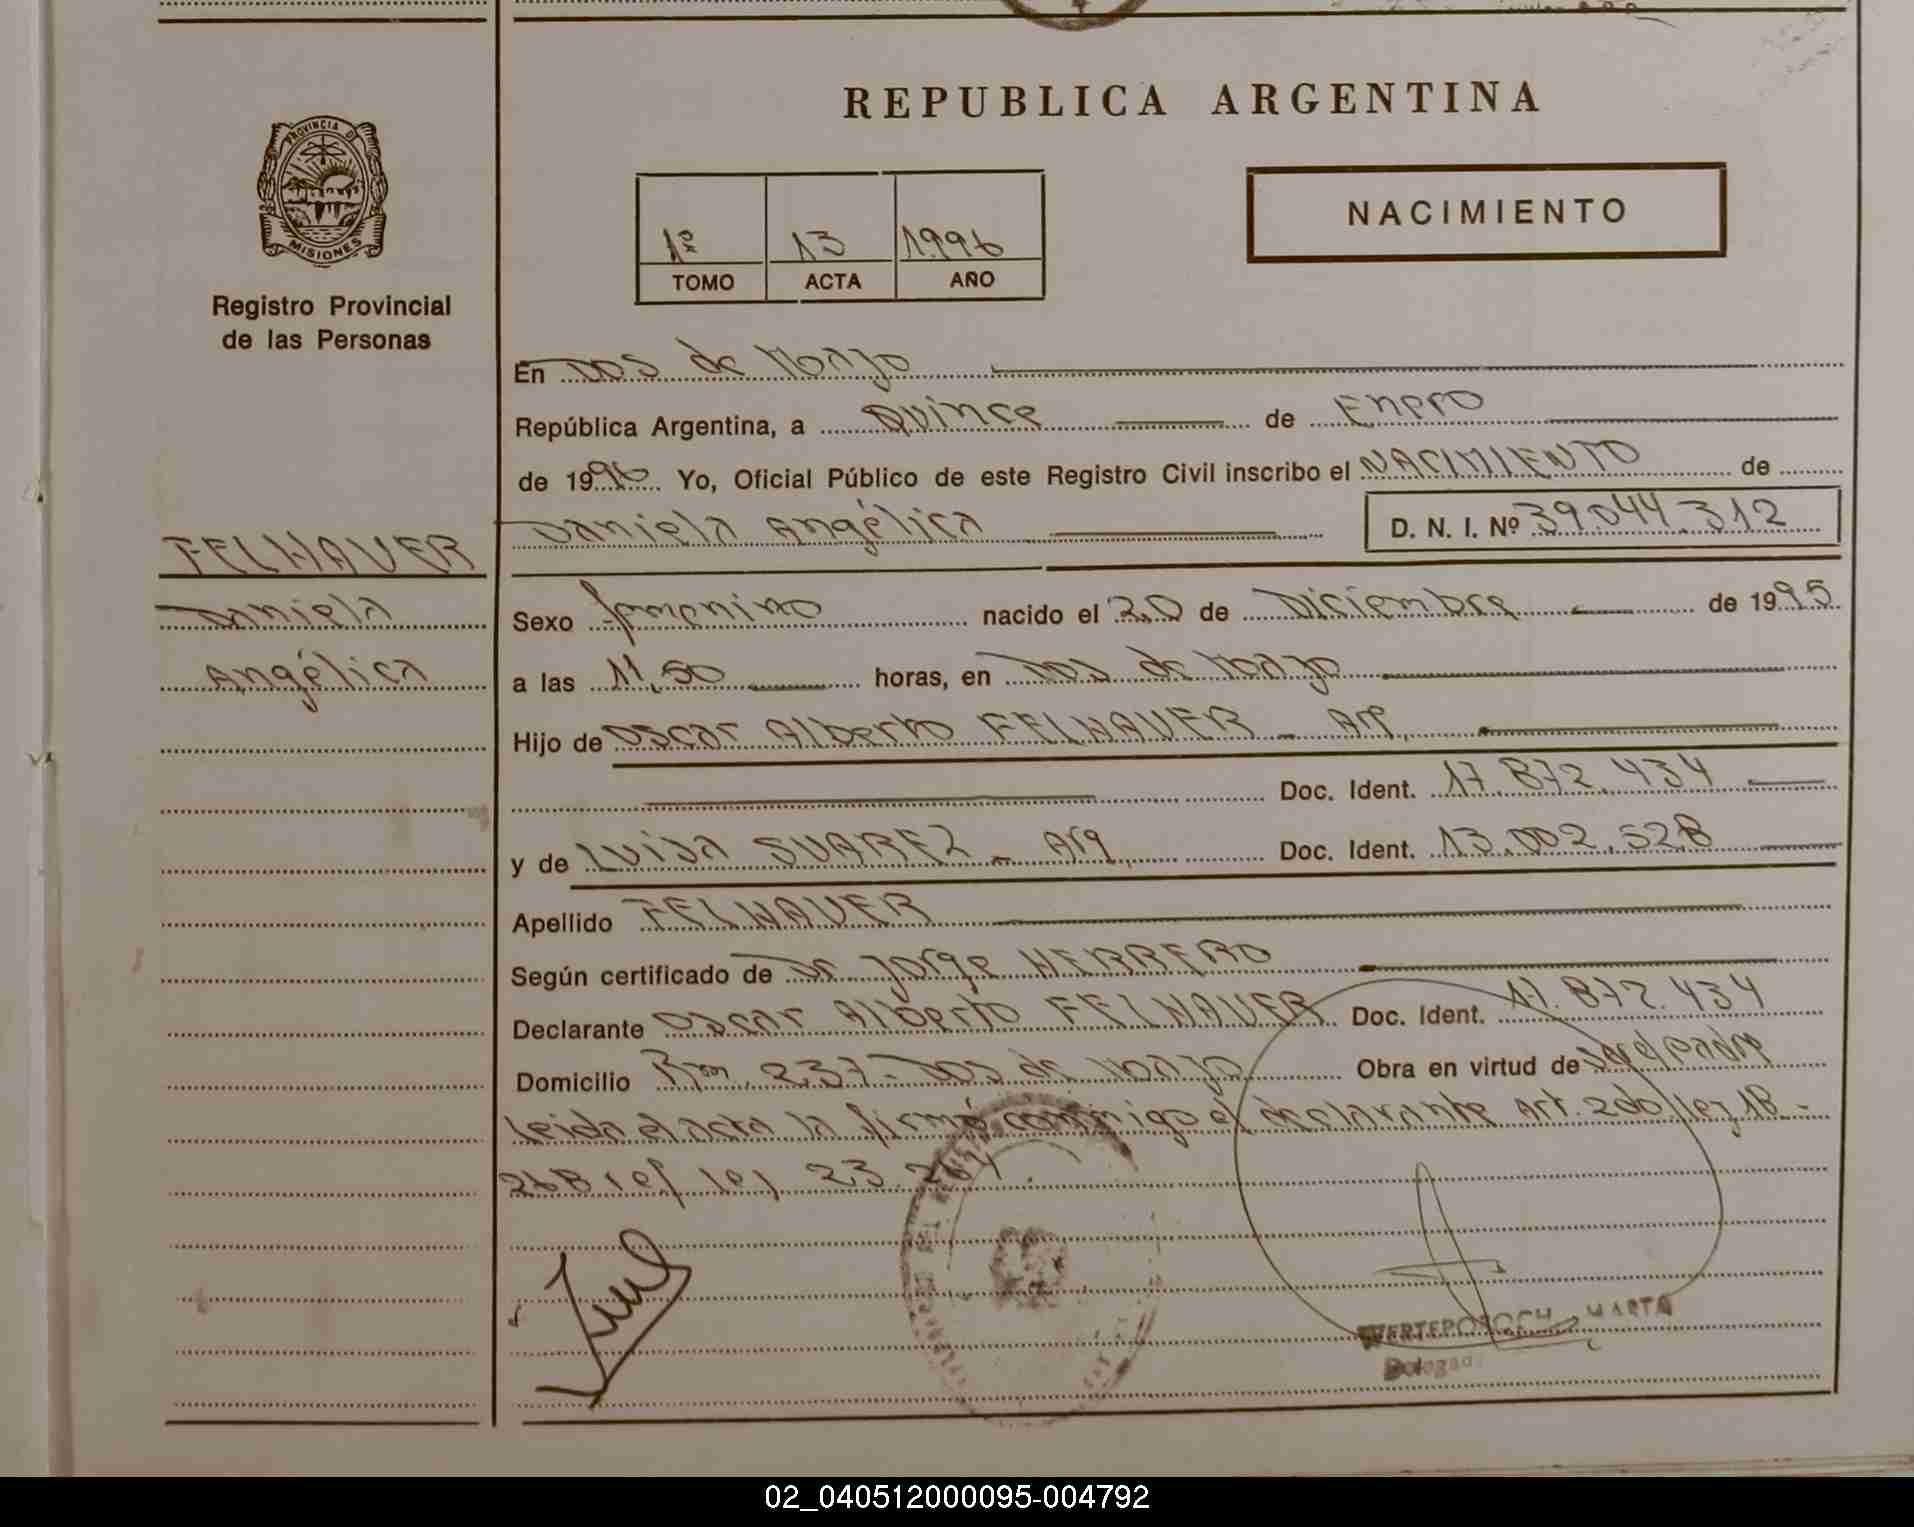 REPUBLICA ARGENTINA
PROVINCIA DE
MISIONES
Registro Provincial
de las Personas
NACIMIENTO
1º 13 1996
TOMO ACTA AÑO
En Dos de Mayo
República Argentina, a Quince de Enero
de 1996 Yo, Oficial Público de este Registro Civil inscribo el NACIMIENTO de
Daniela Angélica D. N. I. Nº 39.044.312
FELHAUER
Daniela
Angélica
Sexo femenino nacido el 20 de Diciembre de 1995
a las 11,50 horas, en Dos de Mayo
Hijo de Oscar Alberto FELHAUER - Arg.
Doc. Ident. 17.872.434
y de Luisa SUAREZ - Arg. Doc. Ident. 13.002.528
Apellido FELHAUER
Según certificado de Dr Jorge HERRERO
Declarante Oscar Alberto FELHAUER Doc. Ident. 17.872.434
Domicilio Km 237 - Dos de Mayo Obra en virtud de ser el padre
Leida el acta la firmó conmigo el declarante Art. 2do ley 18.-
268 ref ley 23.264.
MARTA
02_040512000095-004792